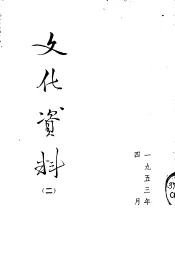 文化資料
(二)
一九五三年
四月